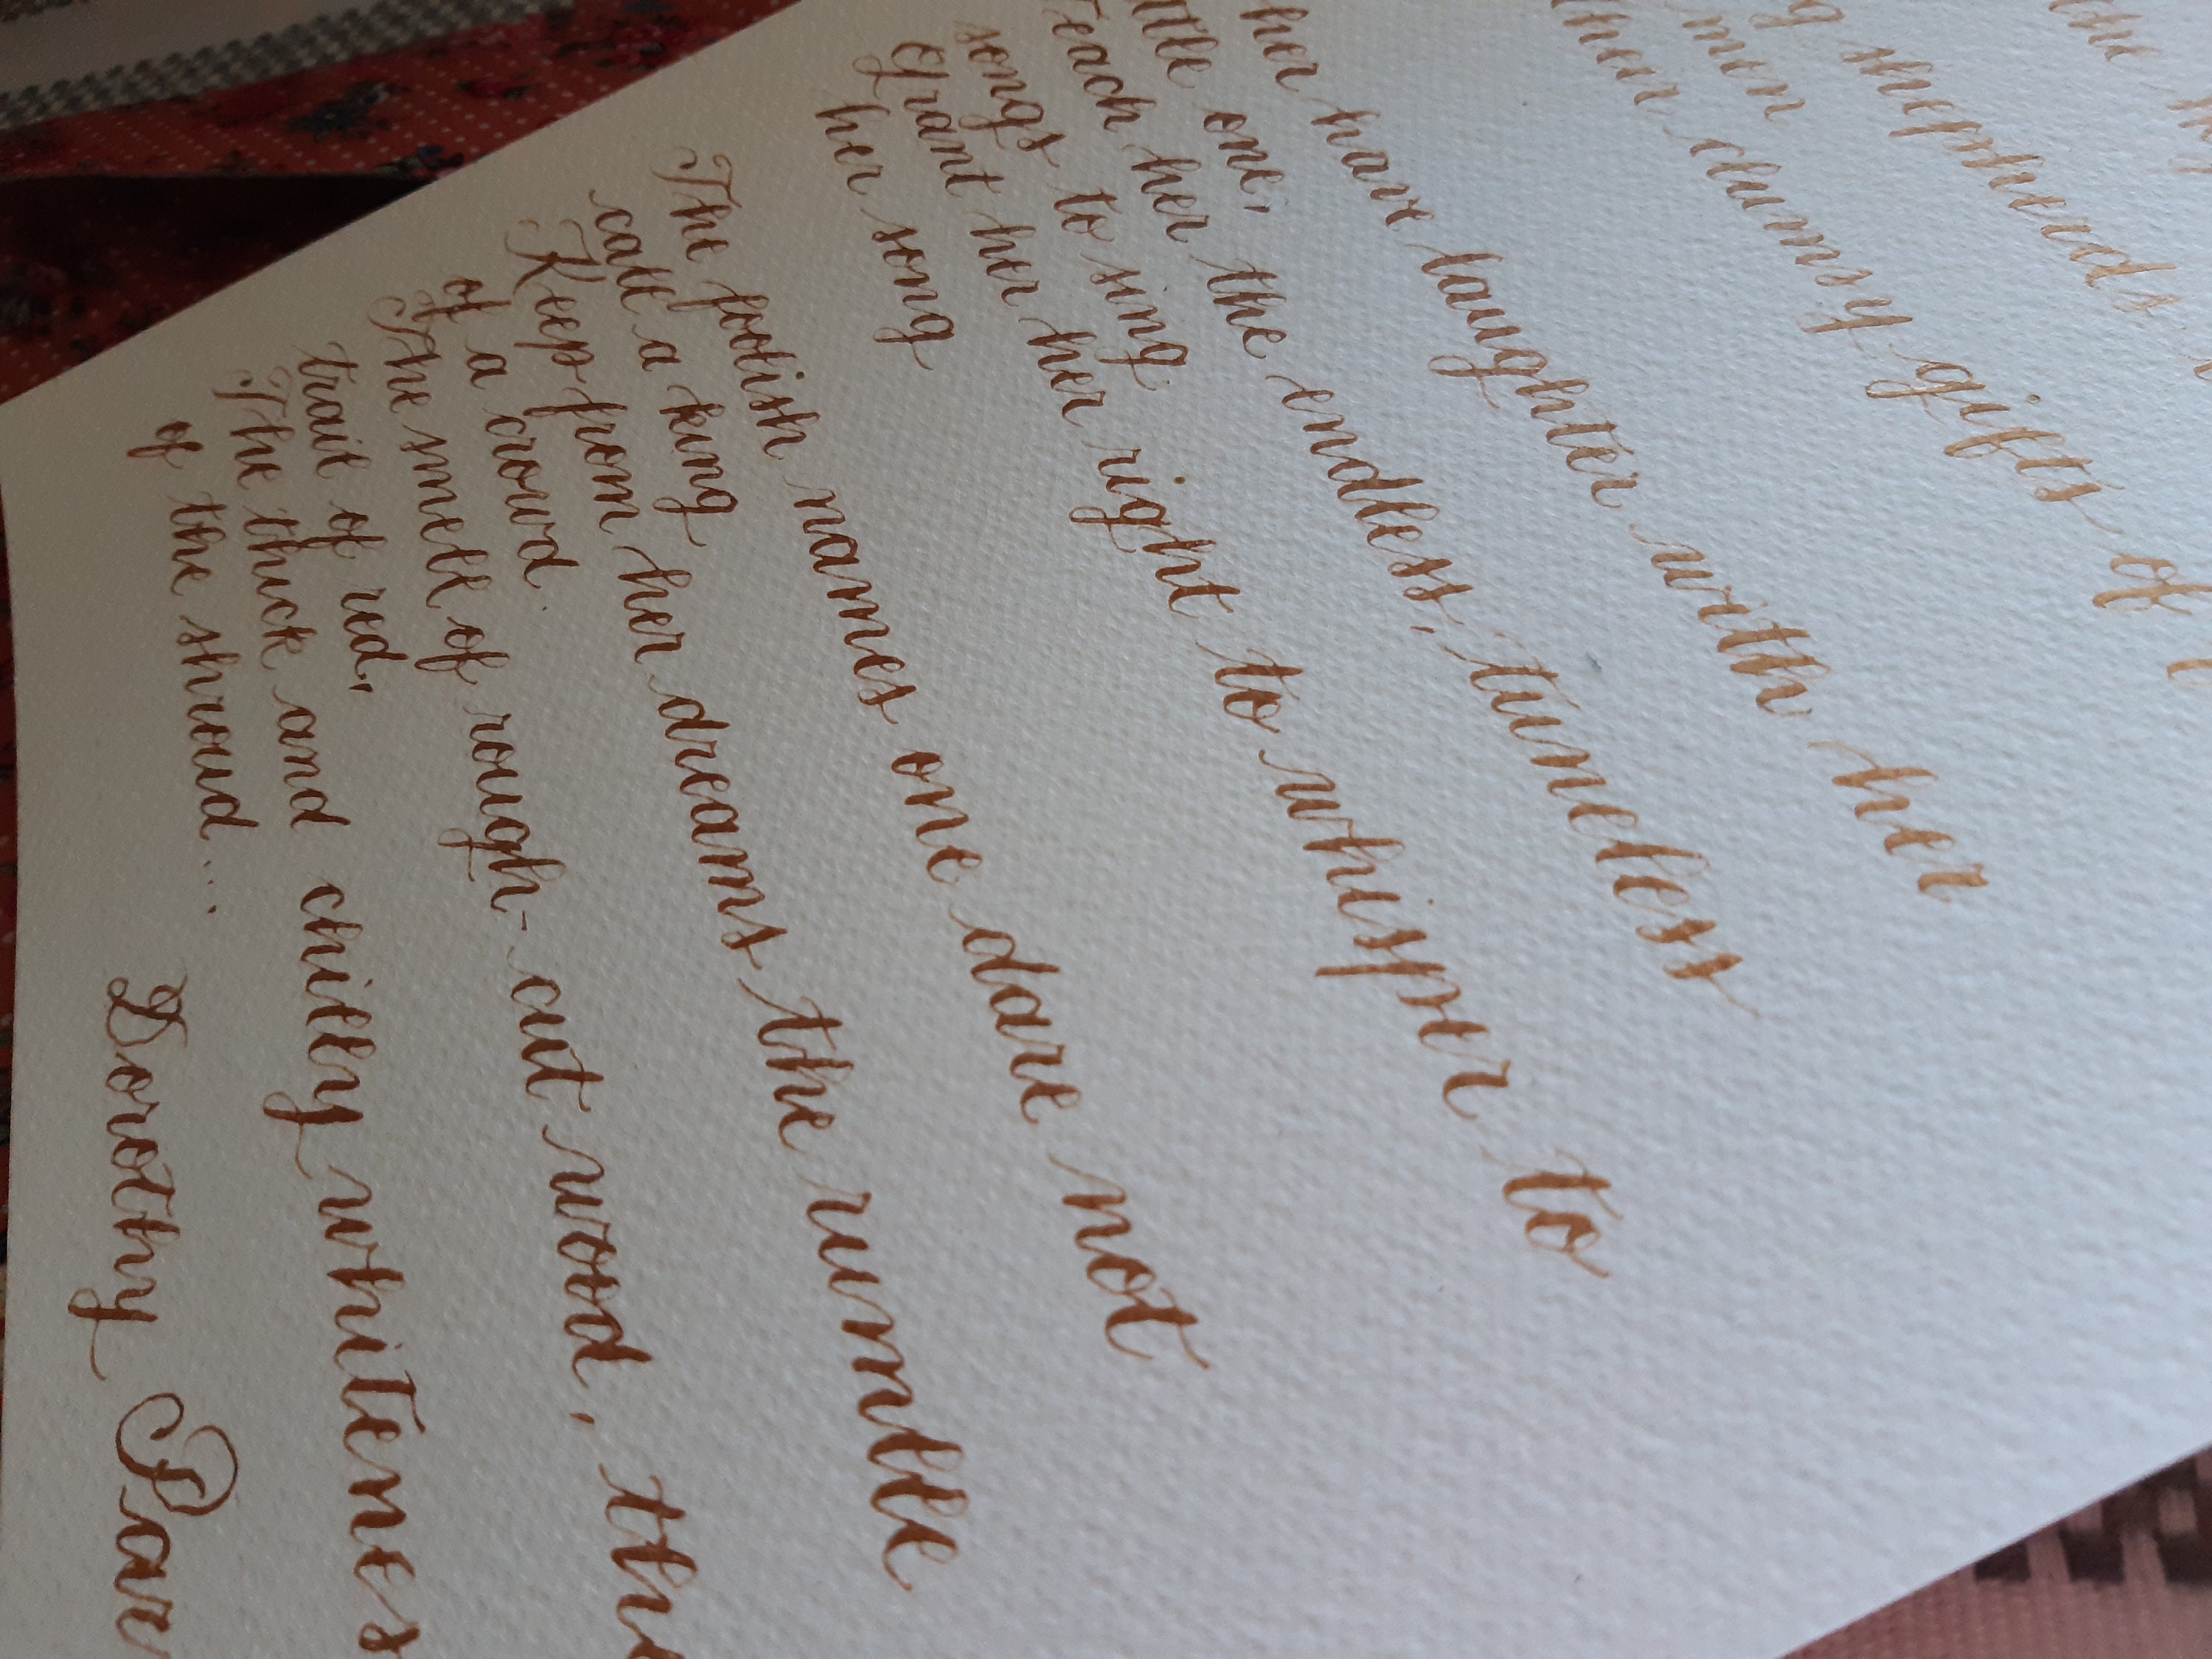 the
g shepherds,
men
their clumsy gifts of
her have laughter with her
ttle one,
Teach her the endless, tuneless
songs to sing,
Grant her her right to whisper to
her song
The foolish names one dare not
call a king
Keep from her dreams the rumble
of a crowd.
The smell of rough-cut wood, the
trail of red,
The thick and chilly whitenes
of the shroud...
Dorothy Par